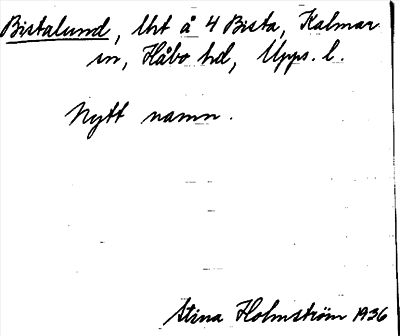 Bistalund, lht å 4 Bista, Kalmar
sn, Håbo hd, Upps. l.
Nytt namn.
Stina Holmström 1936